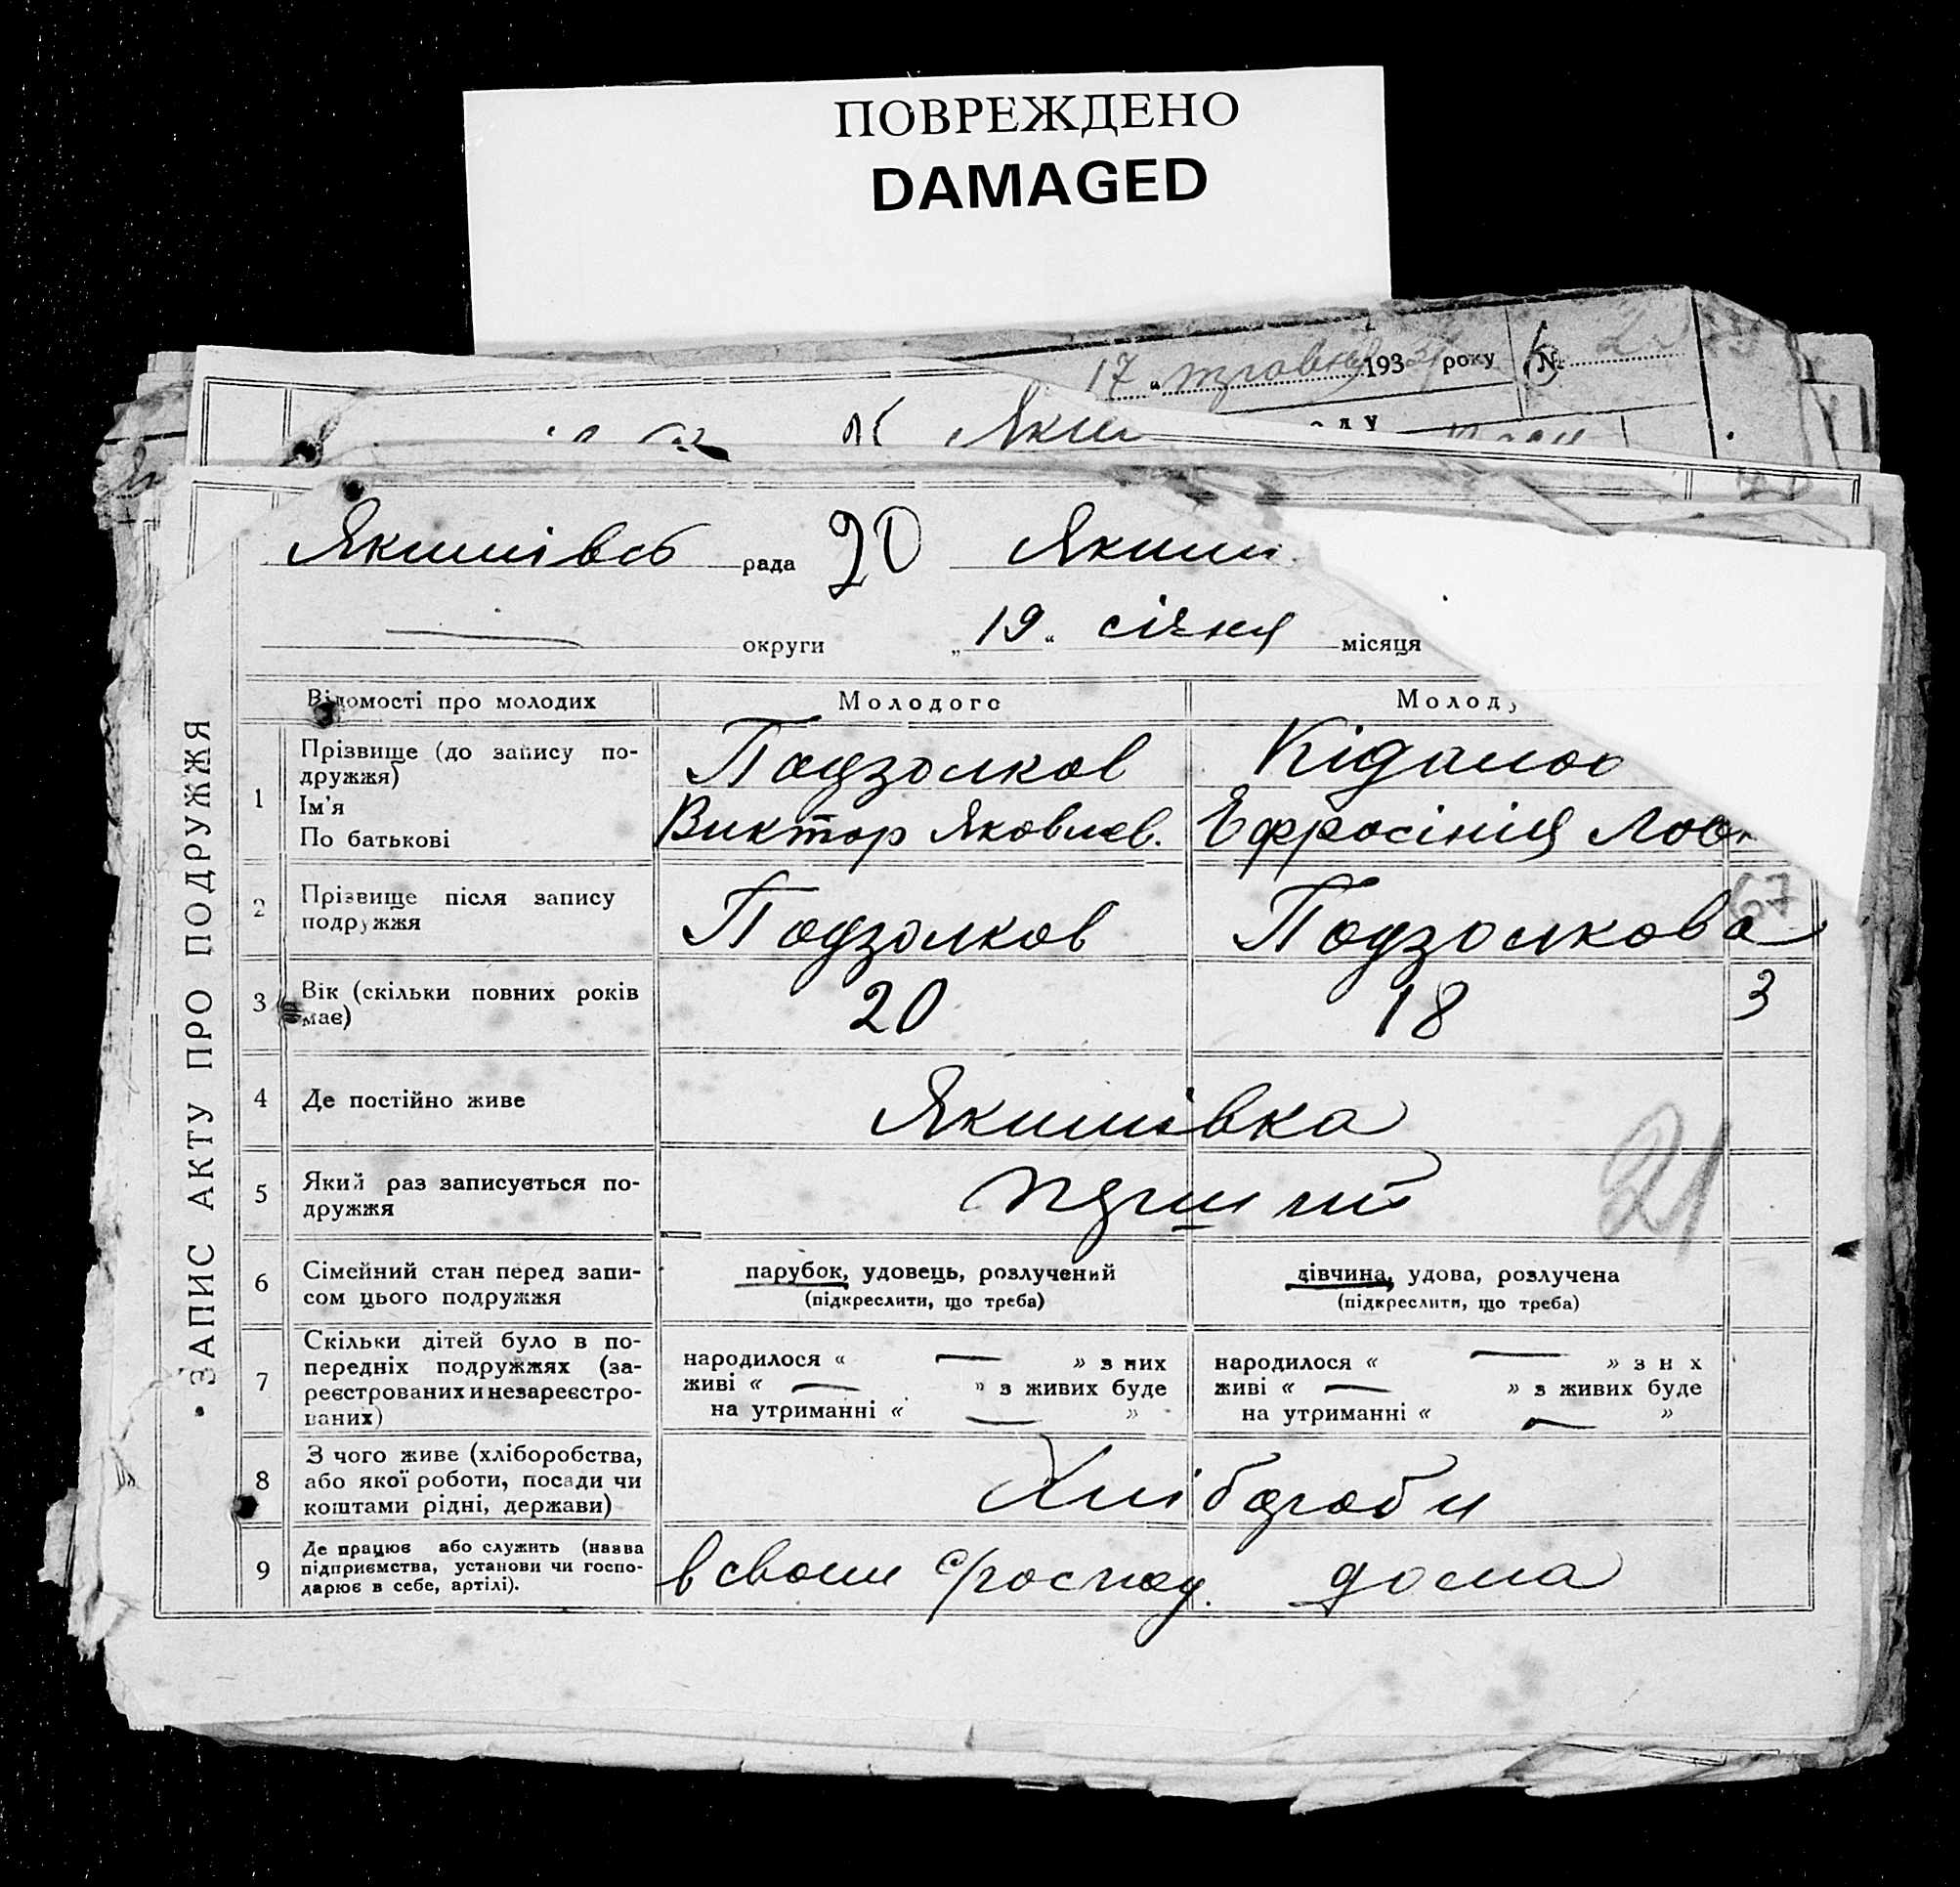 ПОВРЕЖДЕНО
DAMAGED
17 " травня 193 року №
Яким
Якимівсь рада 20 Яким
округи „ 19 " січня місяця
ЗАПИС АКТУ ПРО ПОДРУЖЖЯ
Відомості про молодих Молодого Молоду
1 Прізвище (до запису по-
дружжя)
Ім'я
По батькові
Подзолков
Виктор Яковлев.
Ефросінія
67
2 Прізвище після запису
подружжя
Подзолков Подзолкова
3 Вік (скільки повних років
має)
20 18 3
4 Де постійно живе Якимівка
21
5 Який раз записується по-
дружжя
перший
6 Сімейний стан перед запи-
сом цього подружжя
парубок, удовець, розлучений
(підкреслити, що треба)
дівчина, удова, розлучена
(підкреслити, що треба)
7 Скільки дітей було в по-
передніх подружжях (за-
реєстрованих и незареєстро-
ваних)
народилося « — » з них
живі « — » з живих буде
на утриманні « — »
народилося « — » з н х
живі « — » з живих буде
на утриманні « — »
8 З чого живе (хліборобства,
або якої роботи, посади чи
коштами рідні, держави)
Хлібороби
9 Де працює або служить (назва
підприємства, установи чи госпо-
дарює в себе, артілі).
в своем с/господ. дома